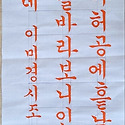 허공에흩날
바라보니
이미경시조